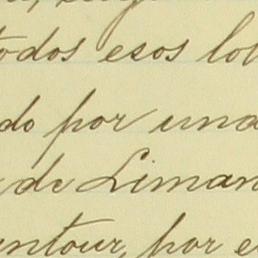 todos esos lo
do por una
de Liman
ntour, por e